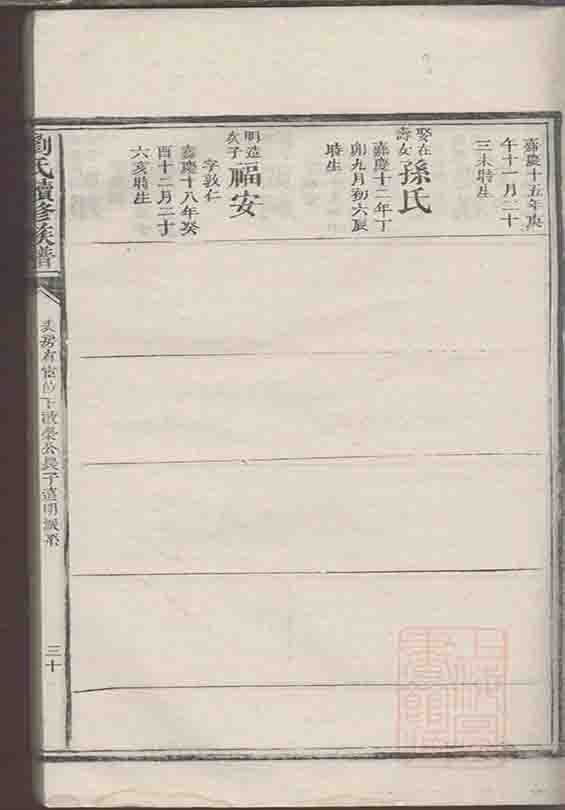 嘉慶十五年庚
午十一月二十
三未時生
娶在
壽女
孫氏
嘉慶十二年丁
卯九月初六辰
時生
明造
次子
福安
字敦仁
嘉慶十八年癸
酉十二月二十
六亥時生
劉氏續修族譜
房有 位下 公長子造明派系
三十
上海圖書館藏